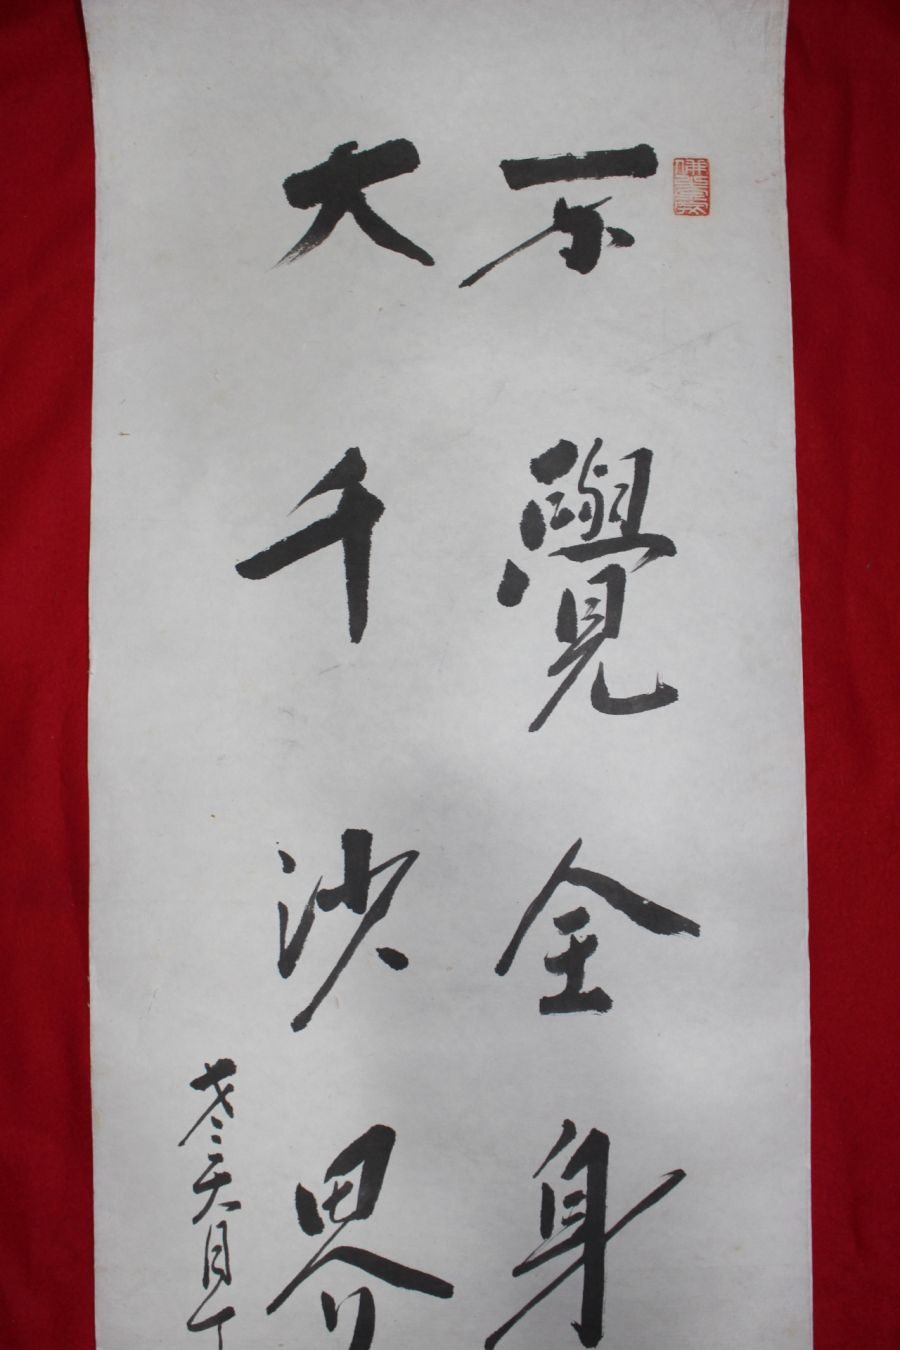 不覺全身
大千沙界
天目